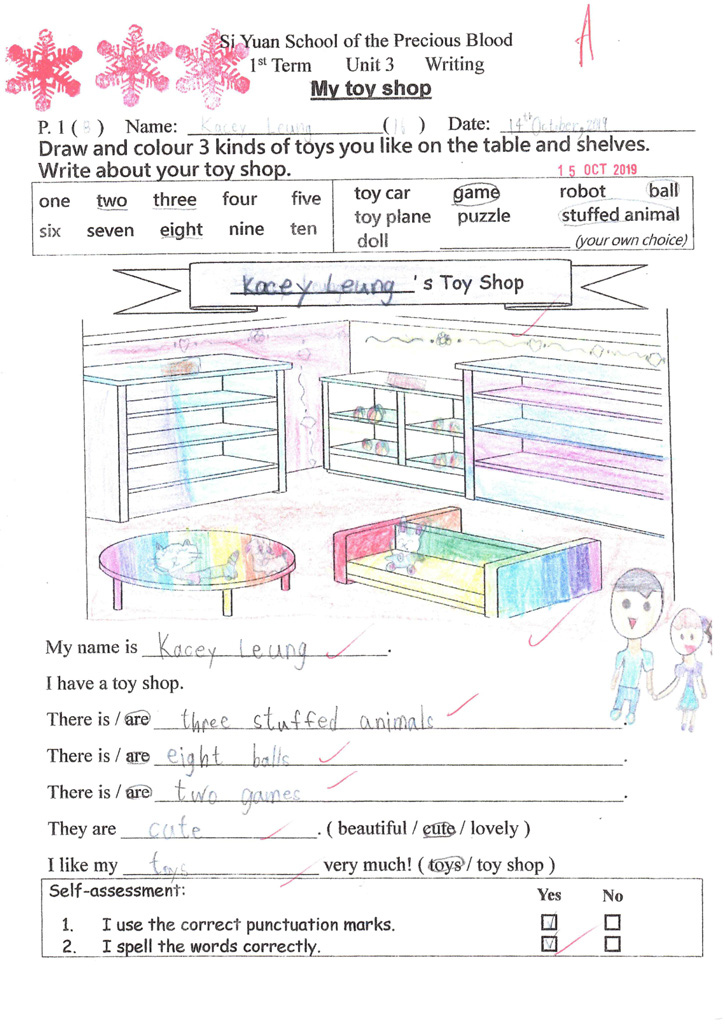 Si Yuan School of the Precious Blood
A
1st Term Unit 3 Writing
My toy shop
P. 1 ( B ) Name: Kacey Leung ( ) Date: 14th October, 2019
Draw and colour 3 kinds of toys you like on the table and shelves.
Write about your toy shop. 15 OCT 2019
one two three four five
six seven eight nine ten
toy car game robot ball
toy plane puzzle stuffed animal
doll ____________ (your own choice)
Kacey Leung 's Toy Shop
My name is Kacey Leung .
I have a toy shop.
There is / are three stuffed animals .
There is / are eight balls .
There is / are two games .
They are cute . ( beautiful / cute / lovely )
I like my toys very much! ( toys / toy shop )
Self-assessment: Yes No
1. I use the correct punctuation marks.
2. I spell the words correctly.